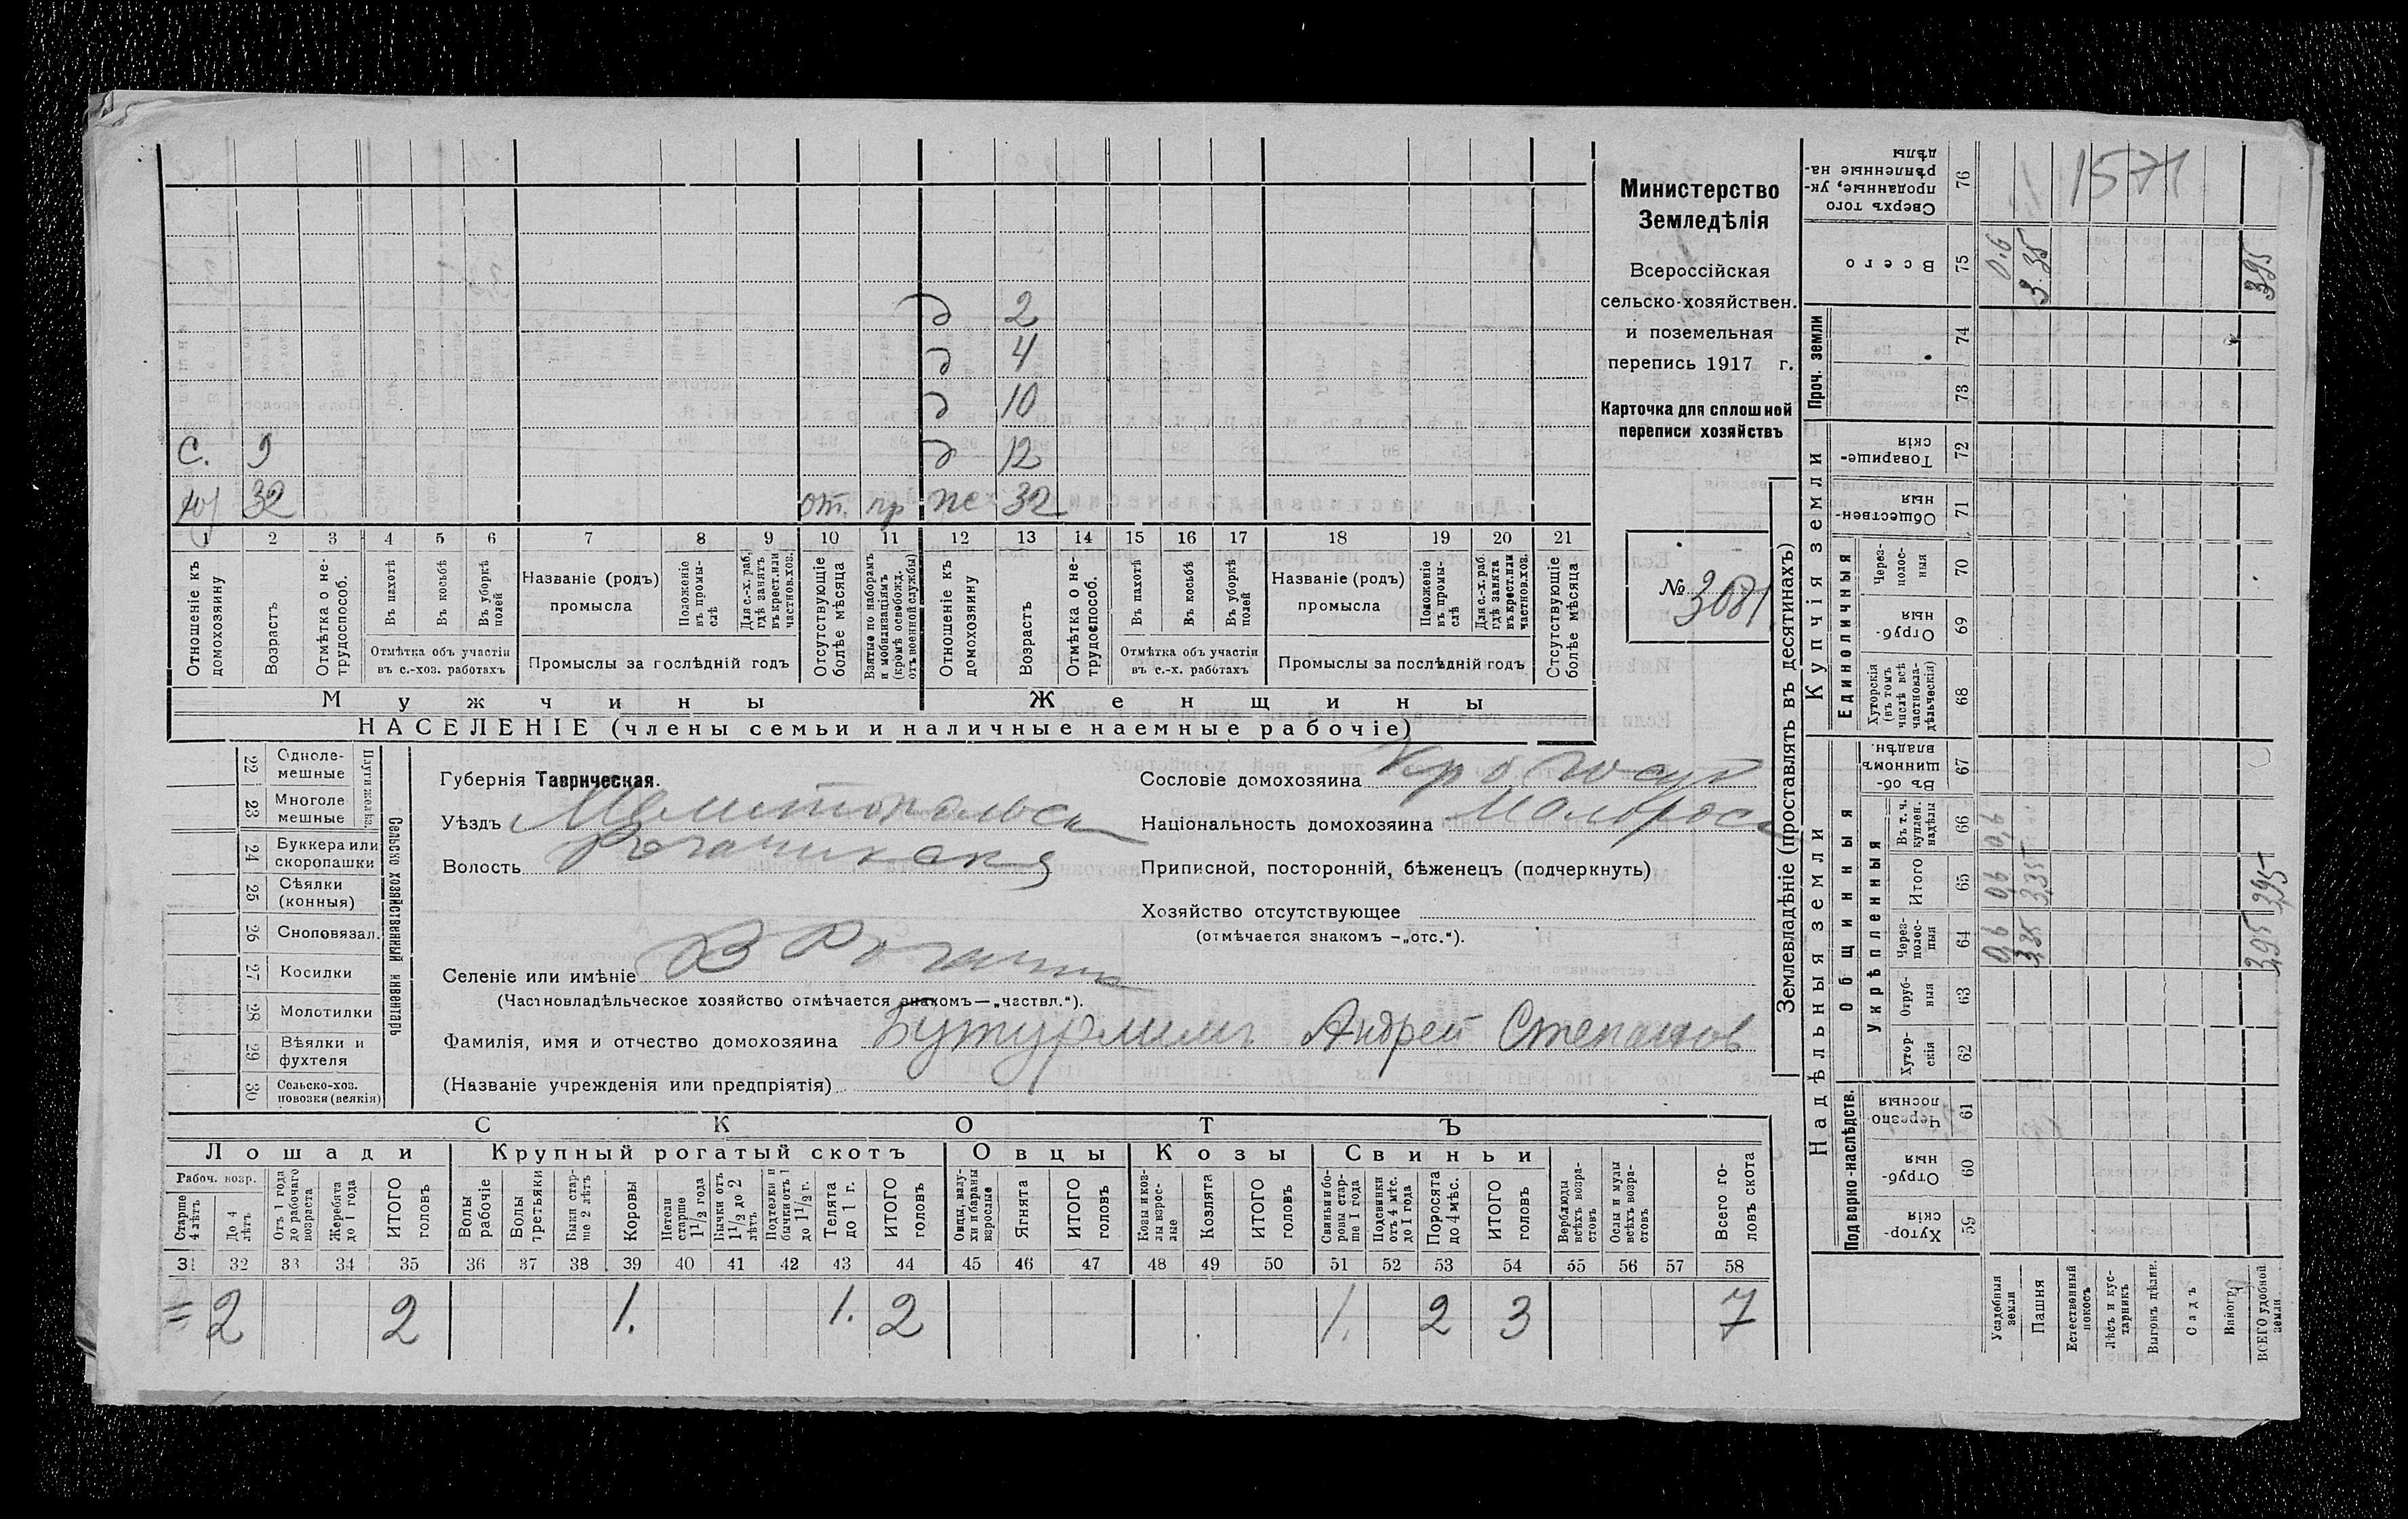 Министерство
Земледѣлія
Всероссійская
сельско-хозяйствен.
и поземельная
перепись 1917 г.
Карточка для сплошной
переписи хозяйствъ
№ 3081
д 2
д 4
д 10
с. 9 д 12
32 от. пр же 32
1 2 3 4 5 6 7 8 9 10 11 12 13 14 15 16 17 18 19 20 21
Отношеніе къ домохозяину
Возрастъ
Отмѣтка о не-трудоспособ.
Въ пахотѣ
Въ косьбѣ
Въ уборкѣ полей
Отмѣтка объ участіи въ с.-хоз. работахъ
Названіе (родъ) промысла
Положеніе въ промы-слѣ
Для с.-х. раб. гдѣ занятъ въ крест. или частнов. хоз.
Промыслы за послѣдній годъ
Отсутствующіе болѣе мѣсяца
Взятые по наборамъ и мобилизаціямъ (кромѣ освобожд. отъ военной службы)
Отношеніе къ домохозяину
Возрастъ
Отмѣтка о не-трудоспособ.
Въ пахотѣ
Въ косьбѣ
Въ уборкѣ полей
Отмѣтка объ участіи въ с.-х. работахъ
Названіе (родъ) промысла
Положеніе въ промы-слѣ
Для с.-х. раб. гдѣ занята въ крест. или частнов. хоз.
Промыслы за послѣдній годъ
Отсутствующіе болѣе мѣсяца
Мужчины Женщины
НАСЕЛЕНІЕ (члены семьи и наличные наемные рабочіе)
Сельско хозяйственный инвентарь
Плуги желѣз.
22 Одноле-мешные
23 Многоле мешные
24 Буккера или скоропашки
25 Сѣялки (конныя)
26 Сноповязал.
27 Косилки
28 Молотилки
29 Вѣялки и фухтеля
30 Сельско-хоз. повозки (всякія)
Губернія Таврическая.
Уѣздъ Мелитопольск
Волость Рогачикская
Селеніе или имѣніе В Рогачик
(Частновладѣльческое хозяйство отмѣчается знакомъ—„частвл.“).
Фамилія, имя и отчество домохозяина Бутурлимъ Андрей Степанов
(Названіе учрежденія или предпріятія)
Сословіе домохозяина Кр б госуд
Національность домохозяина Малоросс
Приписной, посторонній, бѣженецъ (подчеркнуть)
Хозяйство отсутствующее
(отмѣчается знакомъ -„отс.“).
СКОТЪ
Лошади Крупный рогатый скотъ Овцы Козы Свиньи
Рабоч. возр.
Старше 4 лѣтъ
До 4 лѣтъ
Отъ 1 года до рабочаго возраста
Жеребята до 1 года
ИТОГО головъ
Волы рабочіе
Волы третьяки
Быки стар-ше 2 лѣтъ
Коровы
Нетели старше 1 1/2 года
Бычки отъ 1 1/2 до 2 лѣтъ
Подтелки и бычки отъ 1 до 1 1/2 г.
Телята до 1 г.
ИТОГО головъ
Овцы, валу-хи и бараны взрослые
Ягнята
ИТОГО головъ
Козы и коз-лы взрос-лые
Козлята
ИТОГО головъ
Свиньи и бо-ровы стар-ше 1 года
Подсвинки отъ 4 мѣс. до 1 года
Поросята до 4 мѣс.
ИТОГО головъ
Верблюды всѣхъ возра-стовъ
Ослы и мулы всѣхъ возра-стовъ
Всего го-ловъ скота
31 32 33 34 35 36 37 38 39 40 41 42 43 44 45 46 47 48 49 50 51 52 53 54 55 56 57 58
= 2 2 1. 1. 2 1. 2 3 7
Землевладѣніе (проставлять въ десятинахъ)
Надѣльныя земли Купчія земли Проч. земли
Подворно-наслѣдств.
Общинныя
Укрѣпленныя
Единоличныя
59 Хутор-скія
60 Отруб-ныя
61 Черезпо лосныя
62 Хутор-скія
63 Отруб-ныя
64 Через-полос-ныя 0,6 3,35 3,95
65 Итого 0,6 3,35 3,95
66 Въ т. ч. куплен. надѣлы 0,6
67 Въ об-щинномъ владѣн.
68 Хуторскія (въ томъ числѣ всѣ частновла-дѣльческія)
69 Отруб-ныя
70 Через-полос-ныя
71 Обществен-ныя
72 Товарище-скія
73
74
75 Всего 0.6 3.35 395
76 Сверхъ того проданные, ук-рѣпленные на-дѣлы
1571
Усадебныя земли
Пашня
Естественный покосъ
Лѣсъ и кус-тарникъ
Выгонъ дѣлим.
Садъ
Виногр.
ВСЕГО удобной земли